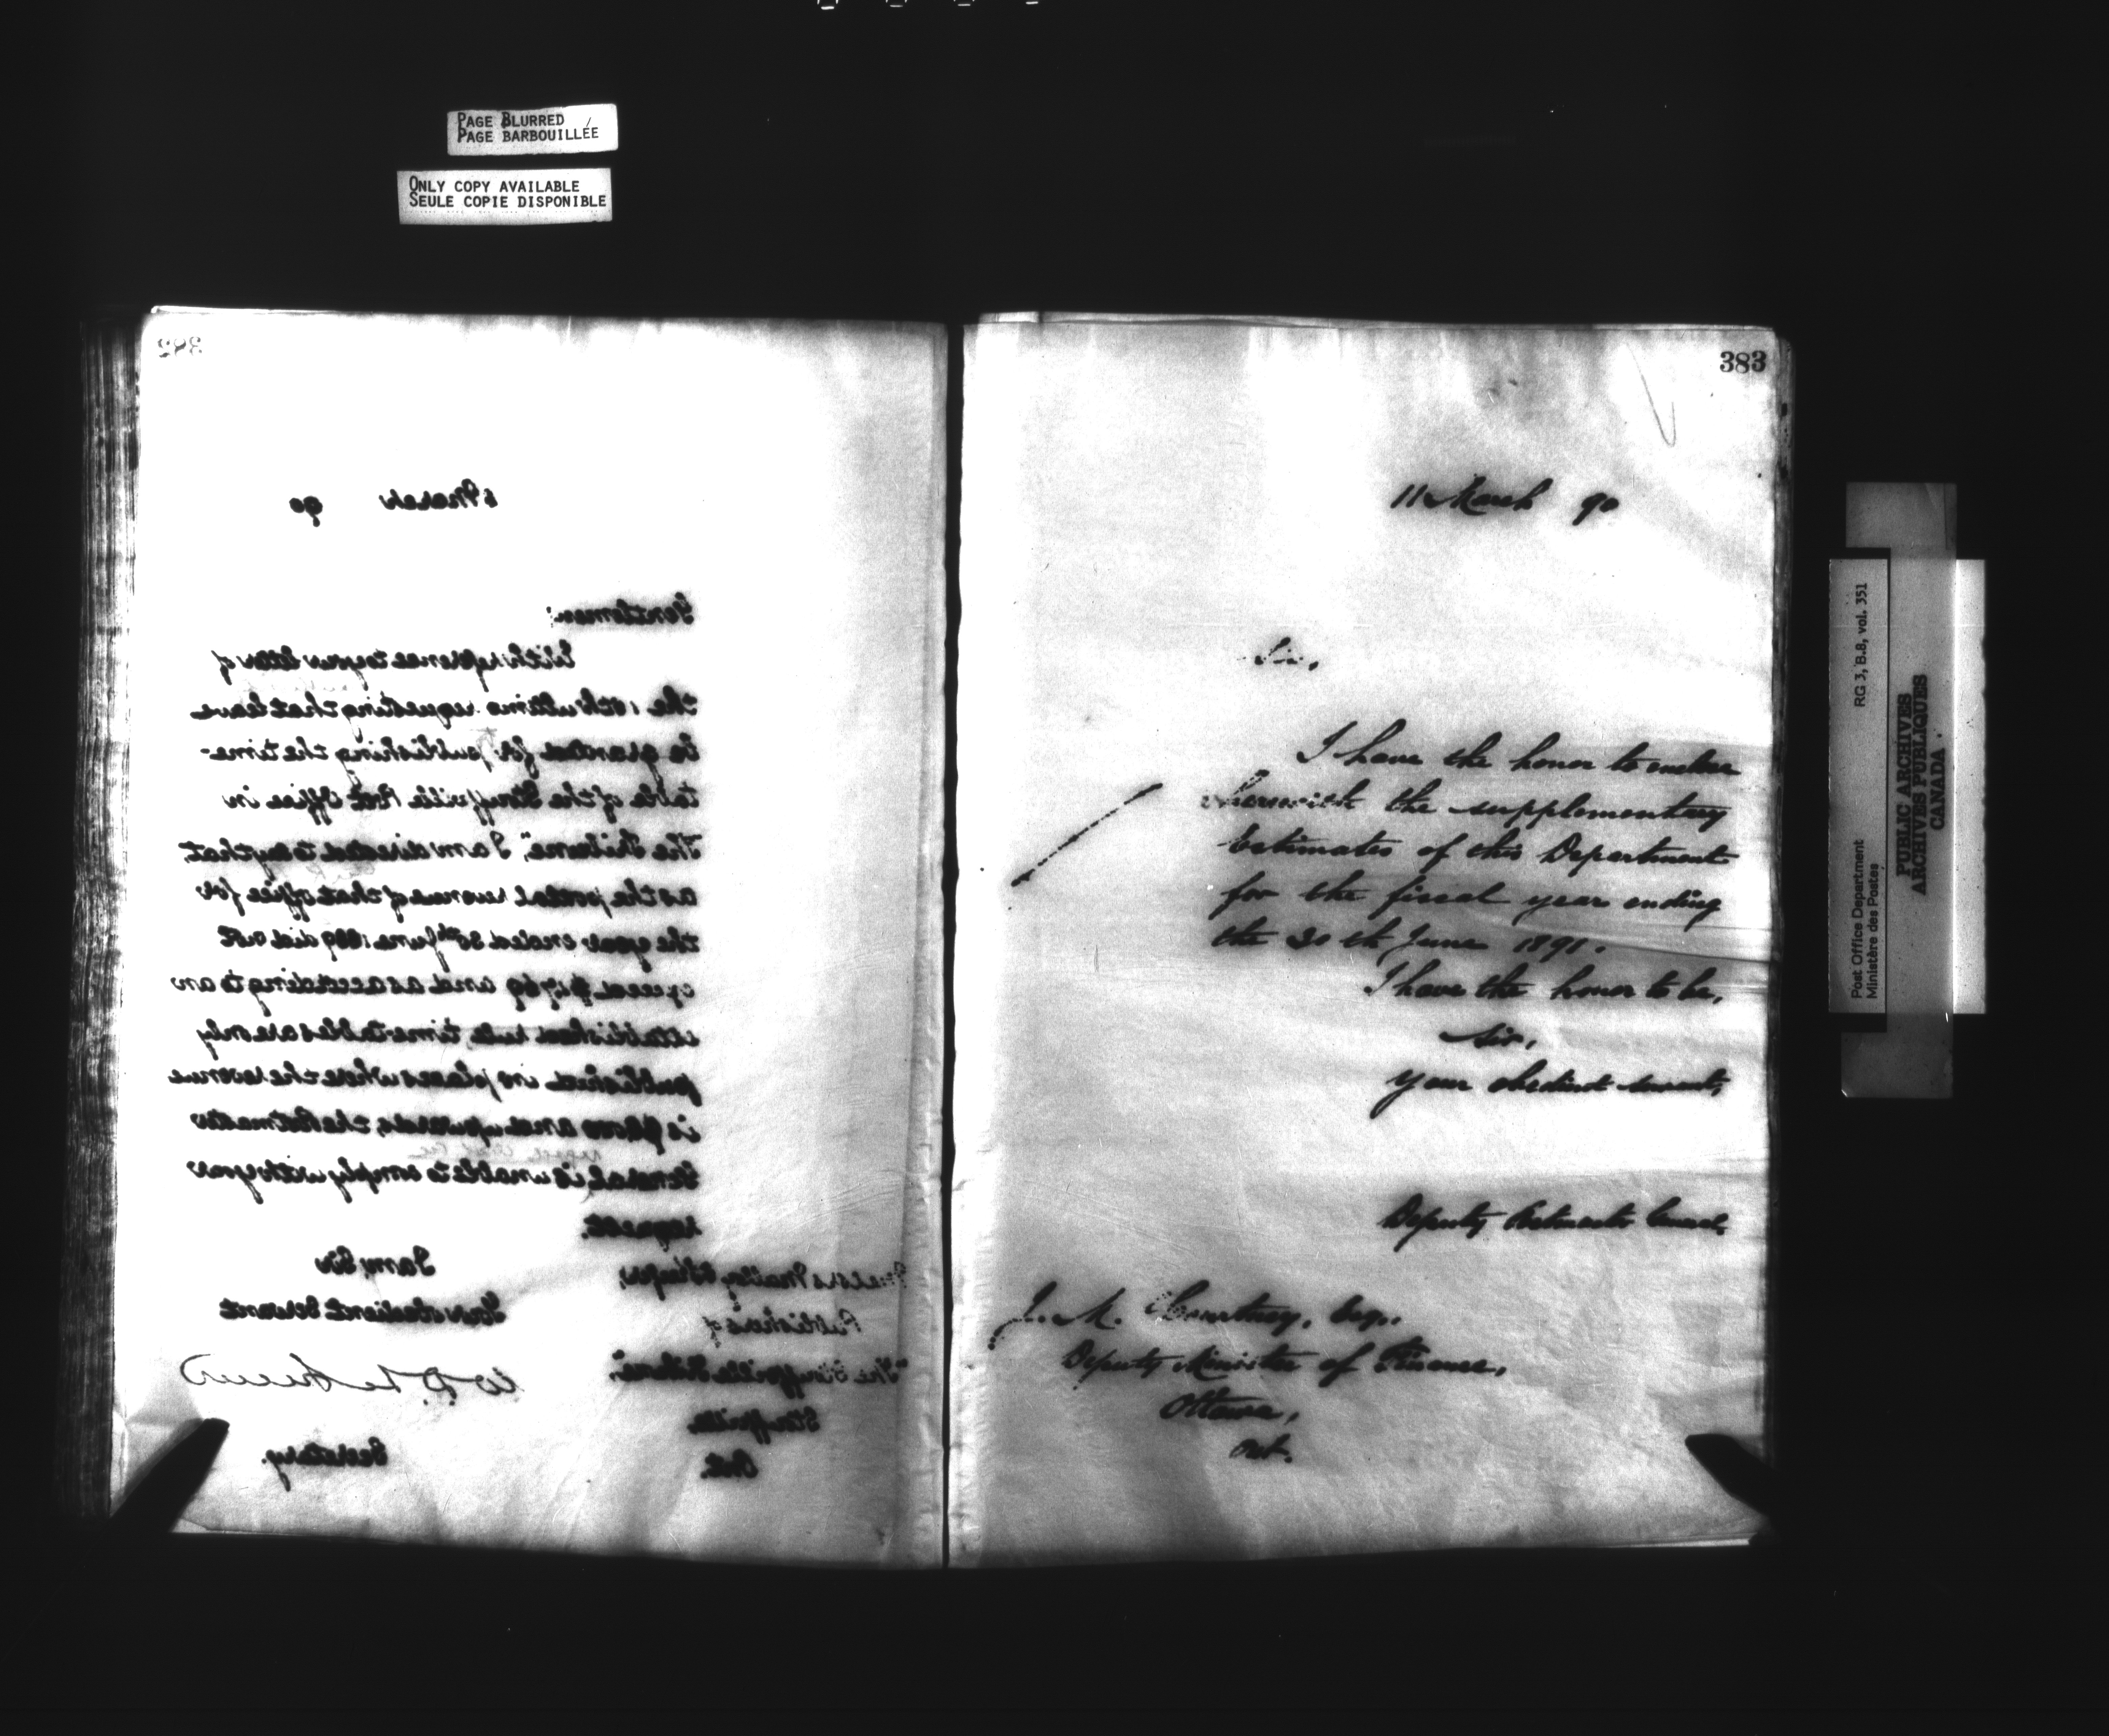 PAGE BLURRED
PAGE BARBOUILLÉE
ONLY COPY AVAILABLE
SEULE COPIE DISPONIBLE
382
6 March 90
Gentlemen:
With reference to your letter of
the ultimo requesting that leave
be granted for publishing the time-
table of the Stouffville Post Office in
"The Tribune", I am directed to say that,
as the postal revenue of that office for
the year ended 30th June 1889 did not
exceed and as according to an
established rule, time tables are only
published in places where the revenue
is and upwards, the Postmaster
General is unable to comply with your
request.
I am, Sir
Your obedient Servant
Secretary.
Messrs
Publishers of
"The Stouffville Tribune",
Stouffville
Ont.
383
11 March 90
Sir,
I have the honor to enclose
herewith the supplementary
Estimates of this Department
for the fiscal year ending
the 30th June 1891.
I have the honor to be,
Sir,
Your obedient servant,
Deputy Postmaster General.
J. M. Courtney, Esq.,
Deputy Minister of Finance,
Ottawa,
Ont.
RG 3, B.8, vol. 351
Post Office Department
Ministère des Postes
PUBLIC ARCHIVES
ARCHIVES PUBLIQUES
CANADA